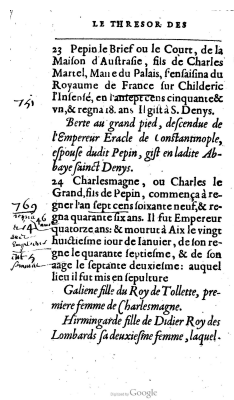 LE THRESOR DES
23 Pepin le Brief ou le Court, de la
Maison d'Austrasie, fils de Charles
Martel, Maire du Palais, s'ensaisina du
Royaume de France sur Childeric
l'Insensé, en l'an sept cens cinquante &
vn, & regna 18. ans Il gist à S. Denys.
751
Berte au grand pied, descendue de
l'Empereur Eracle de Constantinople,
espouse dudit Pepin, gist en ladite Ab-
baye sainct Denys.
24 Charlesmagne, ou Charles le
Grand, fils de Pepin, commença à re-
gner l'an sept cens soixante neuf, & re-
769
gna quarante six ans. Il fut Empereur
46
quatorze ans: & mourut à Aix le vingt
14
huictiesme iour de Ianuier, de son re-
gne le quarante septiesme, & de son
aage le septante deuxiesme: auquel
lieu il fut mis en sepulture
Galiene fille du Roy de Tollette, pre-
miere femme de Charlesmagne.
Hirmingarde fille de Didier Roy des
Lombards sa deuxiesme femme, laquel-
Digitized by Google